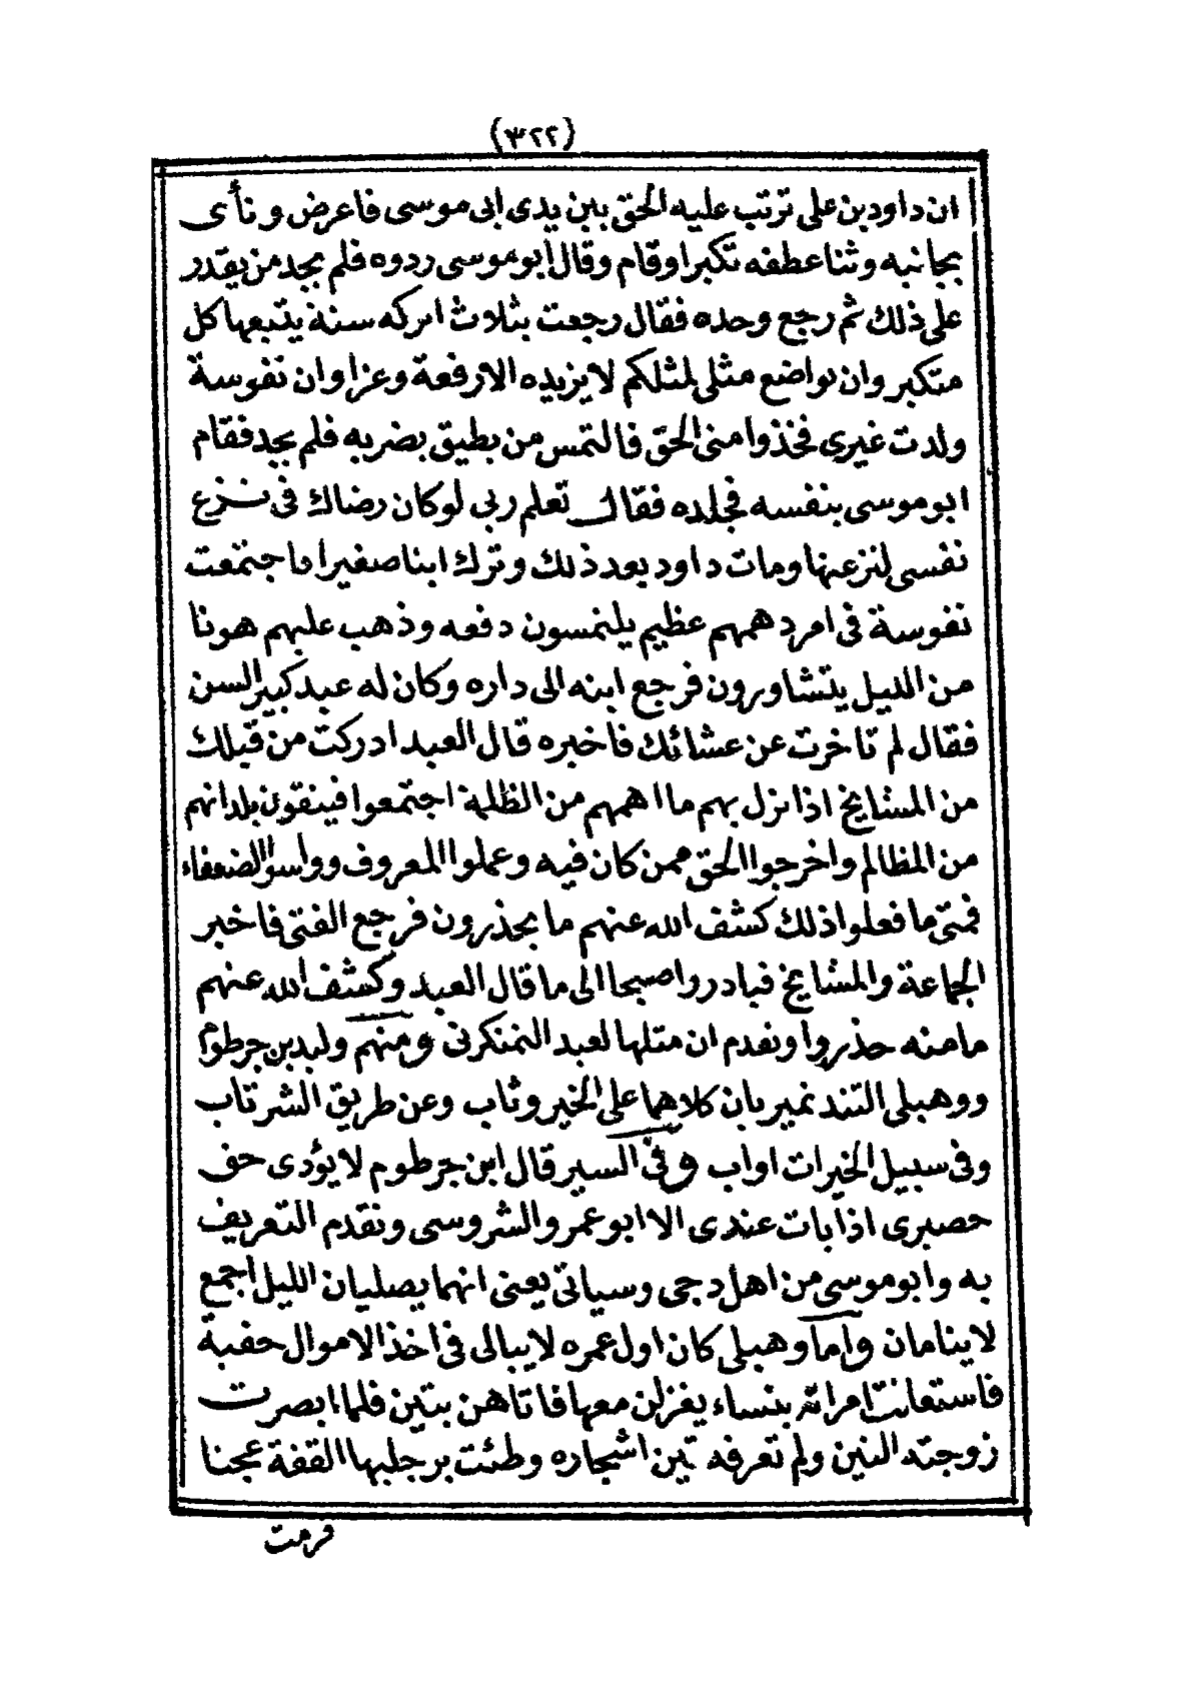 (٣٢٢)
ان داود بن على ترتب عليه الحق بين يدى ابى موسى فاعرض ونأى
بجانبه وثنا عطفه تكبرا وقام وقال ابو موسى ردوه فلم يجد من يقدر
على ذلك ثم رجع وحده فقال رجعت بثلاث اتركه سنة يتبعها كل
متكبر وان تواضع مثلى لمثلكم لا يزيده الا رفعة وعزا وان نفوسة
ولدت غيرى فخذوا منى الحق فالتمس من يطيق بضربه فلم يجد فقام
ابو موسى بنفسه فجلده فقال تعلم ربى لو كان رضاك فى نزع
نفسى لنزعتها ومات داود بعد ذلك وترك ابنا صغيرا واجتمعت
نفوسة فى امر دهمهم عظيم يلتمسون دفعه وذهب عليهم هونا
من الليل يتشاورون فرجع ابنه الى داره وكان له عبد كبير السن
فقال لم تاخرت عن عشائك فاخبره قال العبد ادركت من قبلك
من المشايخ اذا نزل بهم ما اهمهم من الظلمة اجتمعوا فينقون بلدانهم
من المظالم واخرجوا الحق ممن كان فيه وعملوا المعروف وواسوا الضعفاء
فمتى ما فعلوا ذلك كشف الله عنهم ما يحذرون فرجع الفتى فاخبر
الجماعة والمشايخ فبادروا صبحا الى ما قال العبد وكشف الله عنهم
ما منه حذروا وتقدم ان مثلها لعبد التمنكرنى ومنهم وليد بن جرطوم
ووهبلى التندنميريان كلاهما على الخير وثاب وعن طريق الشر تاب
وفى سبيل الخيرات اواب وفى السير قال ابن جرطوم لا يؤدى حق
حصيرى اذا بات عندى الا ابو عمرو الشروسى وتقدم التعريف
به وابو موسى من اهل دجى وسياتى يعنى انهما يصليان الليل اجمع
لا ينامان واما وهبلى كان اول عمره لا يبالى فى اخذ الاموال حقبة
فاستعانت امراته بنساء يغزلن معها فاتاهن بتين فلما ابصرت
زوجته التين ولم تعرفه تين اشجاره وطئت برجليها القفة عجنا
فرمت